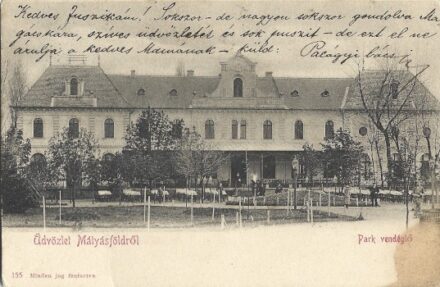 Kedves Zsuzsikám! Sokszor - de nagyon sokszor gondolva Ma-
gácskára, szíves üdvözletét és sok puszit - de ezt el ne
árulja a kedves Mamának - küld: Palágyi bácsi
Üdvözlet Mátyásföldről
Park vendéglő
155 Minden jog fentartva.